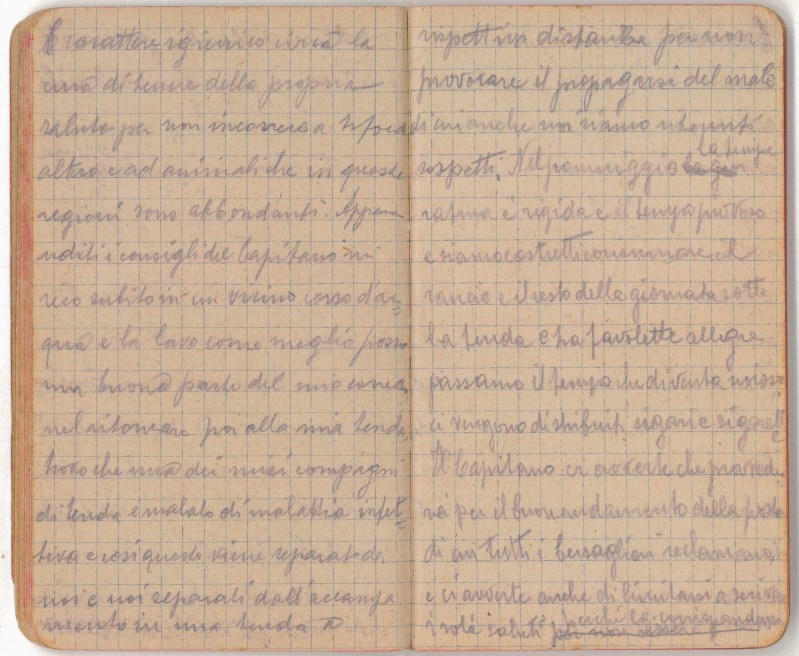 di carattere igienico circa la
cura di tenere della propria
salute per non incorrere a tifo ed
altro e ad animali che in queste
regioni sono abbondanti. Appena
uditi i consigli del Capitano mi
reco subito in un vicino corso d'ac=
qua e la lavo come meglio posso
una buona parte del mio corredo
nel ritornare poi alla mia tenda,
trovo che uno dei miei compagni
di tenda e malato di malattia infet=
tiva e cosi questo viene separato da
noi e noi separati dall'accampa
mento in una tenda a
rispettiva distanza per non
provocare il propagarsi del male
di cui anche noi siamo ritenuti
sospetti. Nel pomeriggio la tempe
ratura è rigida e il tempo piovoso
e siamo costretti consumare il
rancio e il resto della giornata sotto
la tenda e fra favolette allegre
passamo il tempo che diventa noioso
ci vengono distribuiti sigari e sigarette
Il Capitano ci avverte che provede
rà per il buon andamento della posta
di cui tutti i bersaglieri reclamano
e ci avverte anche di limitarsi a scrivere
i soli saluti perché la corrispondenza